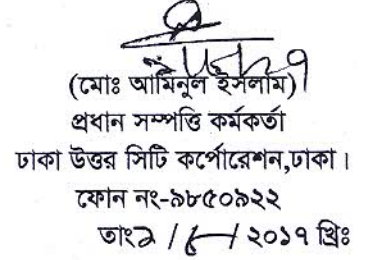 (মোঃ আমিনুল ইসলাম)
প্রধান সম্পত্তি কর্মকর্তা
ঢাকা উত্তর সিটি কর্পোরেশন,ঢাকা।
ফোন নং-৯৮৫০৯২২
তাং২ / / ২০১৭ খ্রিঃ